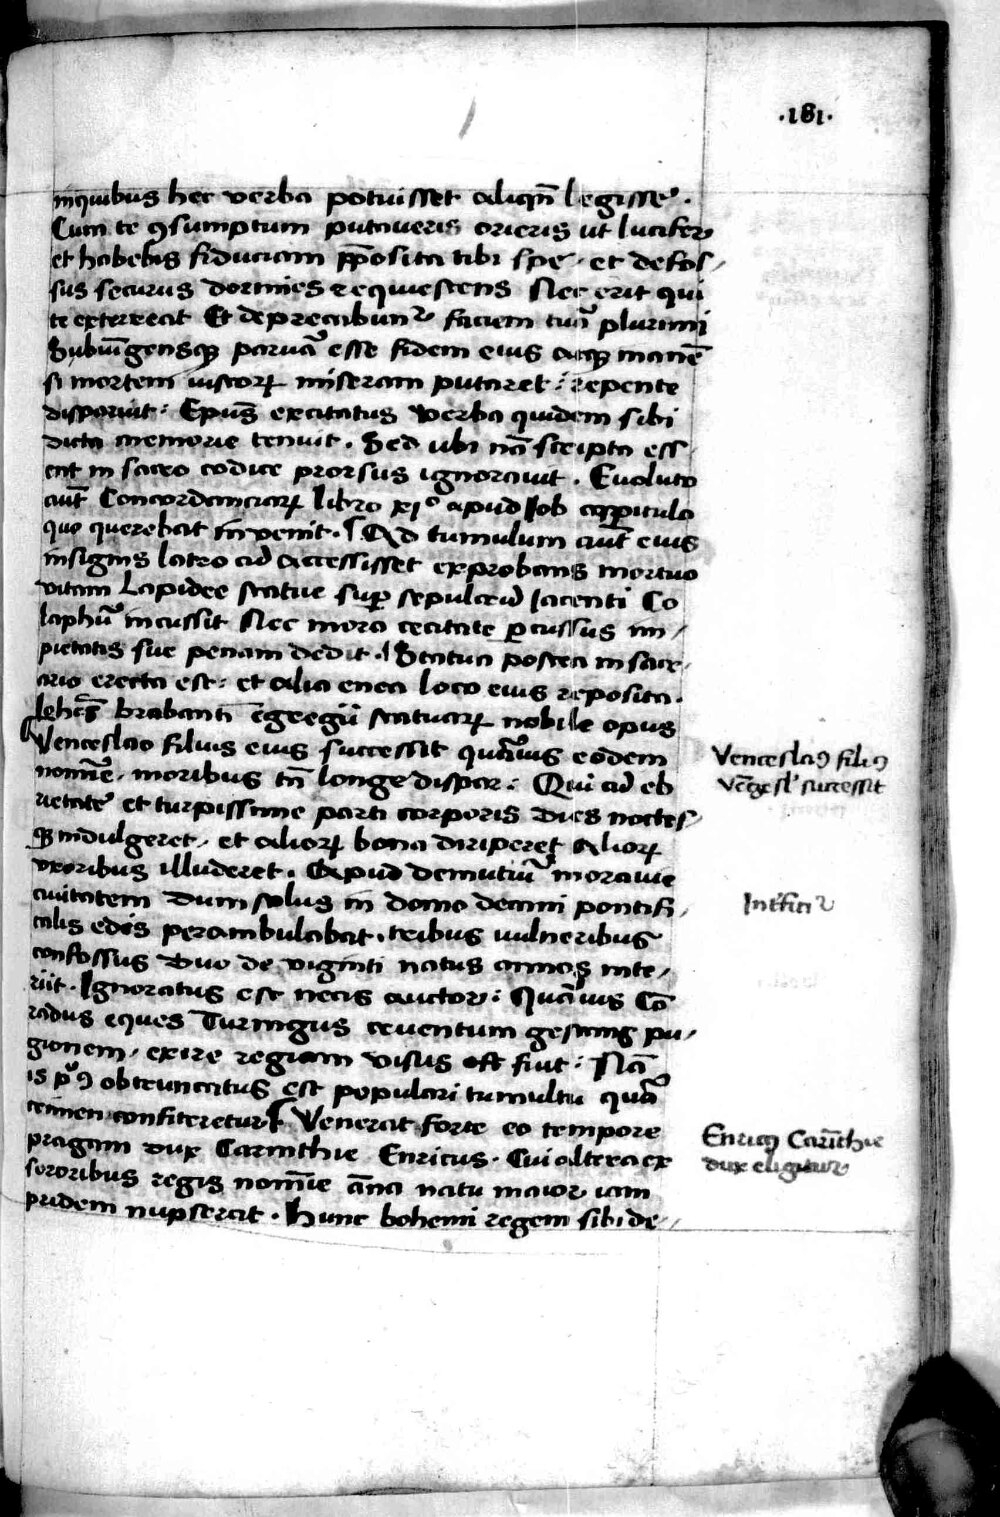 ·181·
inquibus hec verba potuisset aliqn̄ legisse.
Cum te ꝯsumptum putaveris orieris ut lucifer
et habebis fiduciam p̄posita tibi spe. et defos-
sus securus dormies requiescens Nec erit qui
te exterreat Et deprecabunt᷑ faciem tuā plurimi
Subiūgensqꝫ parvā esse fidem eius atqꝫ manē
si mortem iustoꝝ miseram putaret: repente
disparuit: Ep̄us excitatus verba quidem sibi
dicta memorie tenuit. Sed ubi nā scripta ess
ent in sacro codice prorsus ignoravit. Evoluto
aut̄ Concordanciaꝝ libro xiº apud Iob capitulo
quo querebat invenit. Ad tumulum aut̄ eius
insignis latro cū accessisset exprobans mortuo
vitam Lapidee statue suꝑ sepulcrū Iacenti Co
laphū incussit Nec mora cecitate ꝑcussus im-
pietatis sue penam dedit. Statua postea in sacr-
ario erecta est: et alia enea loco eius reposita.
Iohēs brabanti egregii statuaꝝ nobile opus
Venceslao filius eius successit quāvis eodem
nomīe, moribus tn̄ longe dispar: Qui cū eb
rietate et turpissime parti corporis dies noctes-
qꝫ indulgeret, et alioꝝ bona diriperet alioꝝ
uxoribus illuderet. Apud demutiū moravie
civitatem dum solus in domo decani pontifi-
calis edis perambulabat. tribus vulneribus
confossus duo de viginti natus annos inte-
riit. Ignoratus est necis auctor: Quāvis Cō
radus eques Turingus cruentum gestans pu-
gionem, exire regiam visus est fiut: Nā
is pꝰ obtruncatus est populari tumultu quā
crimen confiteretur Venerat forte eo tempore
pragam dux Carinthie Enricus. Cui altera ex
sororibus regis nomīe āna natu maior iam
pridem nupserat. Hunc bohemi regem sibi de-
Venceslaꝰ filiꝰ
Vēcesl' successit
Int̄ficit᷑
Enricꝰ Carīthie
dux eligitur